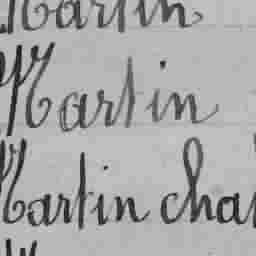 Martin
Martin
Martin cha